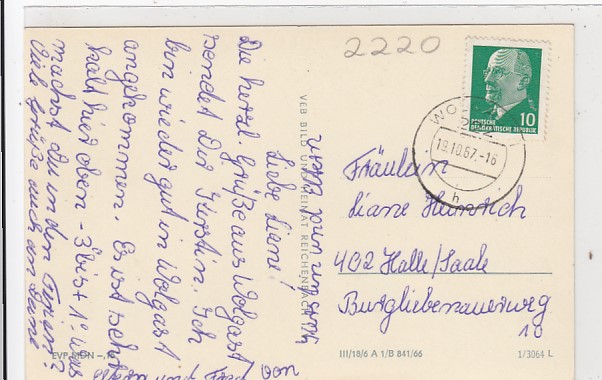 2220
DEUTSCHE
DEMOKRATISCHE REPUBLIK
10
WO
19.10.67.-16
h
VEB BILD UND HEIMAT REICHENBACH
Liebe Liane!
Die herzl. Grüße aus Wolgast
sendet Dir Kerstin. Ich
bin wieder gut in Wolgast
angekommen. Es ist sehr
kalt hier oben - 3 bis + 1°. Was
machst du in den Ferien?
Viele Grüße auch an Deine
von
Fräulein
Liane Heinrich
402 Halle/Saale
Burgliebenauerweg
10
EVP MDN
III/18/6 A 1/B 841/66
1/3064 L